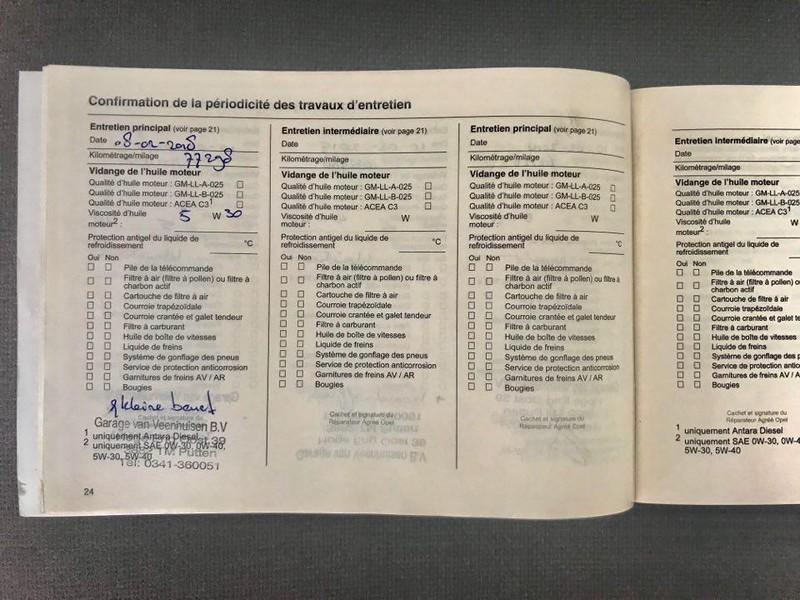 Confirmation de la périodicité des travaux d'entretien
Entretien principal (voir page 21)
Date 08-02-2018
Kilométrage/milage 77298
Vidange de l'huile moteur
Qualité d'huile moteur : GM-LL-A-025
Qualité d'huile moteur : GM-LL-B-025
Qualité d'huile moteur : ACEA C3¹
Viscosité d'huile 5 W 30
moteur² :
Protection antigel du liquide de
refroidissement °C
Oui Non
Pile de la télécommande
Filtre à air (filtre à pollen) ou filtre à
charbon actif
Cartouche de filtre à air
Courroie trapézoïdale
Courroie crantée et galet tendeur
Filtre à carburant
Huile de boîte de vitesses
Liquide de freins
Système de gonflage des pneus
Service de protection anticorrosion
Garnitures de freins AV / AR
Bougies
kleine beurt
Cachet et signature du
Garage van Veenhuisen B.V
1 uniquement Antara Diesel
2 uniquement SAE 0W-30, 0W-40,
5W-30, 5W-40
Putten
Tel: 0341-360051
24
Entretien intermédiaire (voir page 21)
Date
Kilométrage/milage
Vidange de l'huile moteur
Qualité d'huile moteur : GM-LL-A-025
Qualité d'huile moteur : GM-LL-B-025
Qualité d'huile moteur : ACEA C3
Viscosité d'huile W
moteur :
Protection antigel du liquide de
refroidissement °C
Oui Non
Pile de la télécommande
Filtre à air (filtre à pollen) ou filtre à
charbon actif
Cartouche de filtre à air
Courroie trapézoïdale
Courroie crantée et galet tendeur
Filtre à carburant
Huile de boîte de vitesses
Liquide de freins
Système de gonflage des pneus
Service de protection anticorrosion
Garnitures de freins AV / AR
Bougies
Cachet et signature du
Réparateur Agréé Opel
Entretien principal (voir page 21)
Date
Kilométrage/milage
Vidange de l'huile moteur
Qualité d'huile moteur : GM-LL-A-025
Qualité d'huile moteur : GM-LL-B-025
Qualité d'huile moteur : ACEA C3
Viscosité d'huile W
moteur :
Protection antigel du liquide de
refroidissement °C
Oui Non
Pile de la télécommande
Filtre à air (filtre à pollen) ou filtre à
charbon actif
Cartouche de filtre à air
Courroie trapézoïdale
Courroie crantée et galet tendeur
Filtre à carburant
Huile de boîte de vitesses
Liquide de freins
Système de gonflage des pneus
Service de protection anticorrosion
Garnitures de freins AV / AR
Bougies
Cachet et signature du
Réparateur Agréé Opel
Entretien intermédiaire (voir page
Date
Kilométrage/milage
Vidange de l'huile moteur
Qualité d'huile moteur : GM-LL-A-025
Qualité d'huile moteur : GM-LL-B-025
Qualité d'huile moteur : ACEA C3¹
Viscosité d'huile W
moteur² :
Protection antigel du liquide de
refroidissement
Oui Non
Pile de la télécommande
Filtre à air (filtre à pollen) ou
charbon actif
Cartouche de filtre à air
Courroie trapézoïdale
Courroie crantée et galet
Filtre à carburant
Huile de boîte de vitesses
Liquide de freins
Système de gonflage des
Service de protection
Garnitures de freins AV / AR
Bougies
Cachet et signature du
Réparateur Agréé Opel
1 uniquement Antara Diesel
2 uniquement SAE 0W-30, 0W-4
5W-30, 5W-40